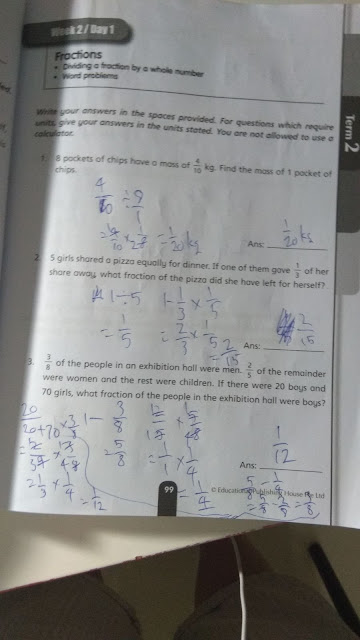 Week 2 / Day 1
Fractions
• Dividing a fraction by a whole number
• Word problems
Term 2
Write your answers in the spaces provided. For questions which require
units, give your answers in the units stated. You are not allowed to use a
calculator.
1. 8 packets of chips have a mass of 4/10 kg. Find the mass of 1 packet of
chips.
= 1/20 kg
Ans: 1/20 kg
2. 5 girls shared a pizza equally for dinner. If one of them gave 1/3 of her
share away, what fraction of the pizza did she have left for herself?
1 ÷ 5
= 1/5
1 - 1/3 × 1/5
= 2/3 × 1/5
= 2/15
Ans: 2/15
3. 3/8 of the people in an exhibition hall were men. 2/5 of the remainder
were women and the rest were children. If there were 20 boys and
70 girls, what fraction of the people in the exhibition hall were boys?
1 - 3/8
= 5/8
= 1/1 × 1/4
= 1/4
= 1/3 × 1/4
= 1/12
Ans: 1/12
99
© Educational Publishing House Pte Ltd